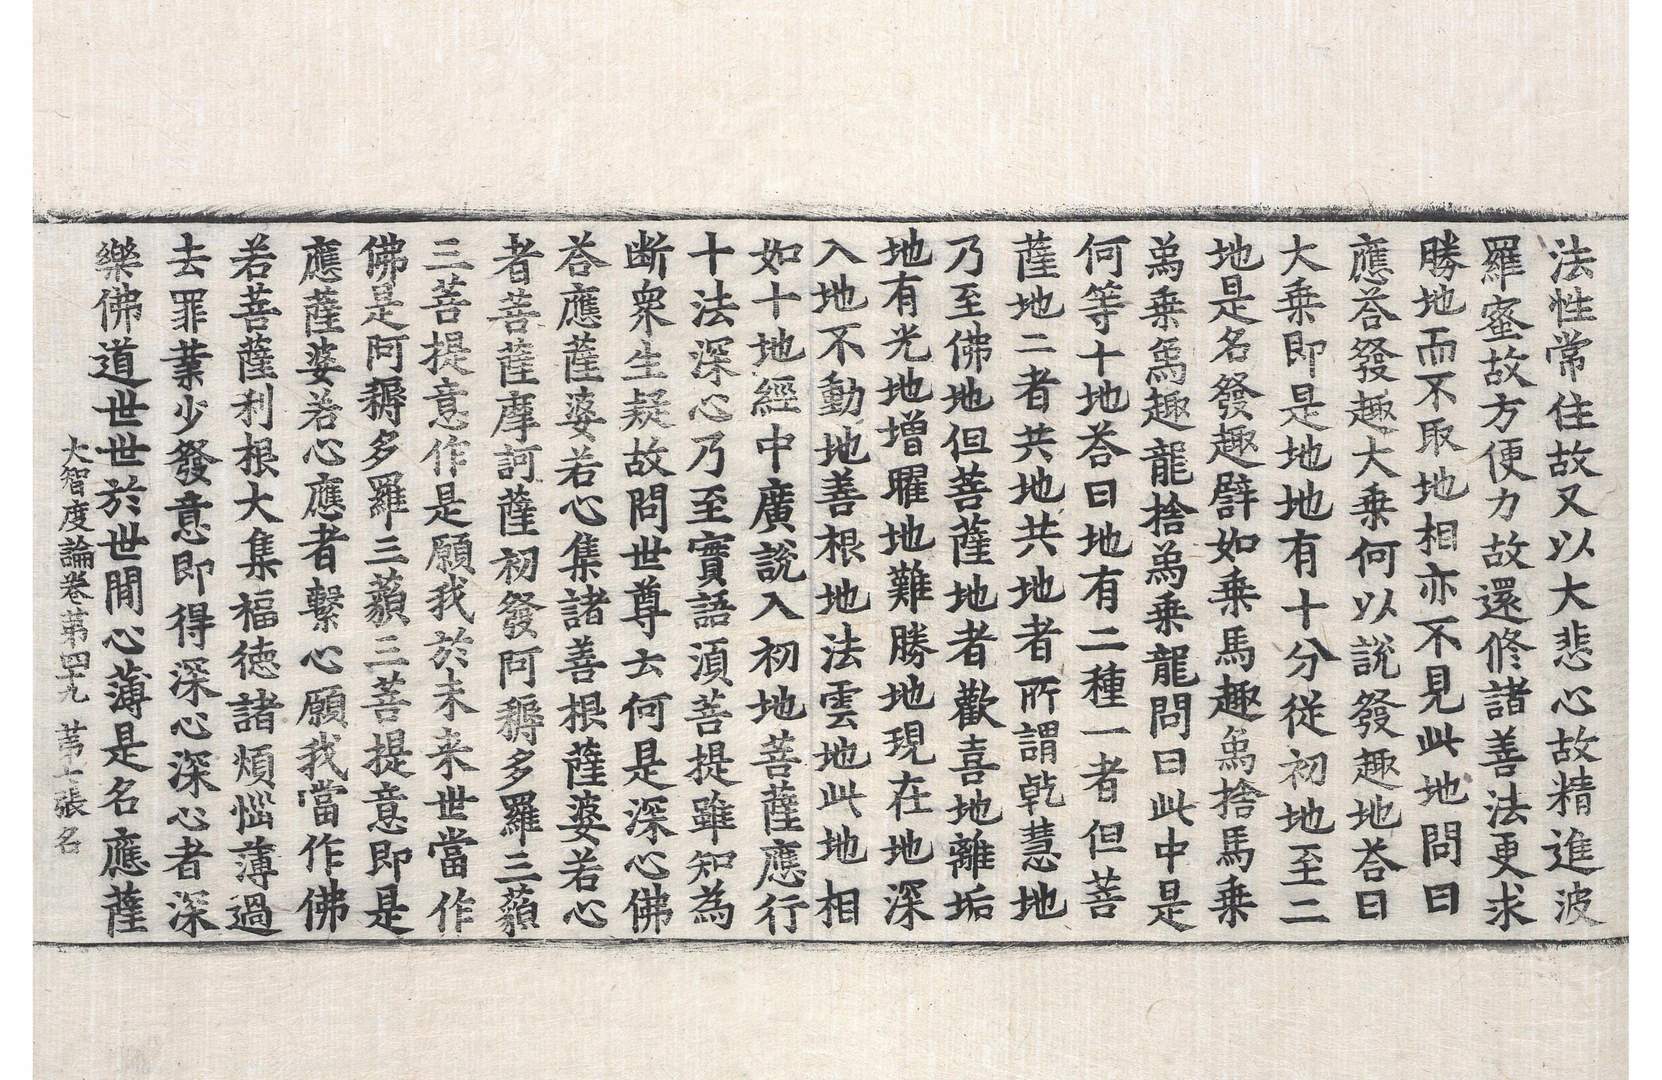 法性常住故又以大悲心故精進波
羅蜜故方便力故還修諸善法更求
勝地而不取地相亦不見此地問曰
應荅發趣大乗何以說發趣地荅曰
大乗即是地地有十分從初地至二
地是名發趣譬如乗馬趣象捨馬乗
象乗象趣龍捨象乗龍問曰此中是
何等十地荅曰地有二種一者但菩
薩地二者共地共地者所謂乾慧地
乃至佛地但菩薩地者歡喜地離垢
地有光地增曜地難勝地現在地深
入地不動地善根地法雲地此地相
如十地經中廣說入初地菩薩應行
十法深心乃至實語湏菩提雖知為
断衆生疑故問世尊云何是深心佛
荅應薩婆若心集諸善根薩婆若心
者菩薩摩訶薩初發阿耨多羅三藐
三菩提意作是願我於未来世當作
佛是阿耨多羅三藐三菩提意即是
應薩婆若心應者繫心願我當作佛
若菩薩利根大集福德諸煩惱薄過
去罪業少發意即得深心深心者深
樂佛道世世於世間心薄是名應薩
大智度論卷第四十九 第七張 名